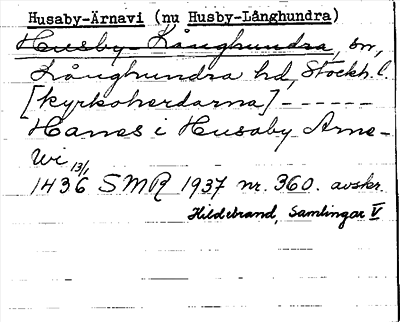 Husaby-Ärnavi (nu Husby-Långhundra)
Husby-Långhundra, sn,
Långhundra hd, Stockh. l.
[kyrkoherdarna] ------
Hanes i Husaby Arne-
wi
13/1
1436 SMR 1937 nr. 360. avskr.
Hildebrand, Samlingar V